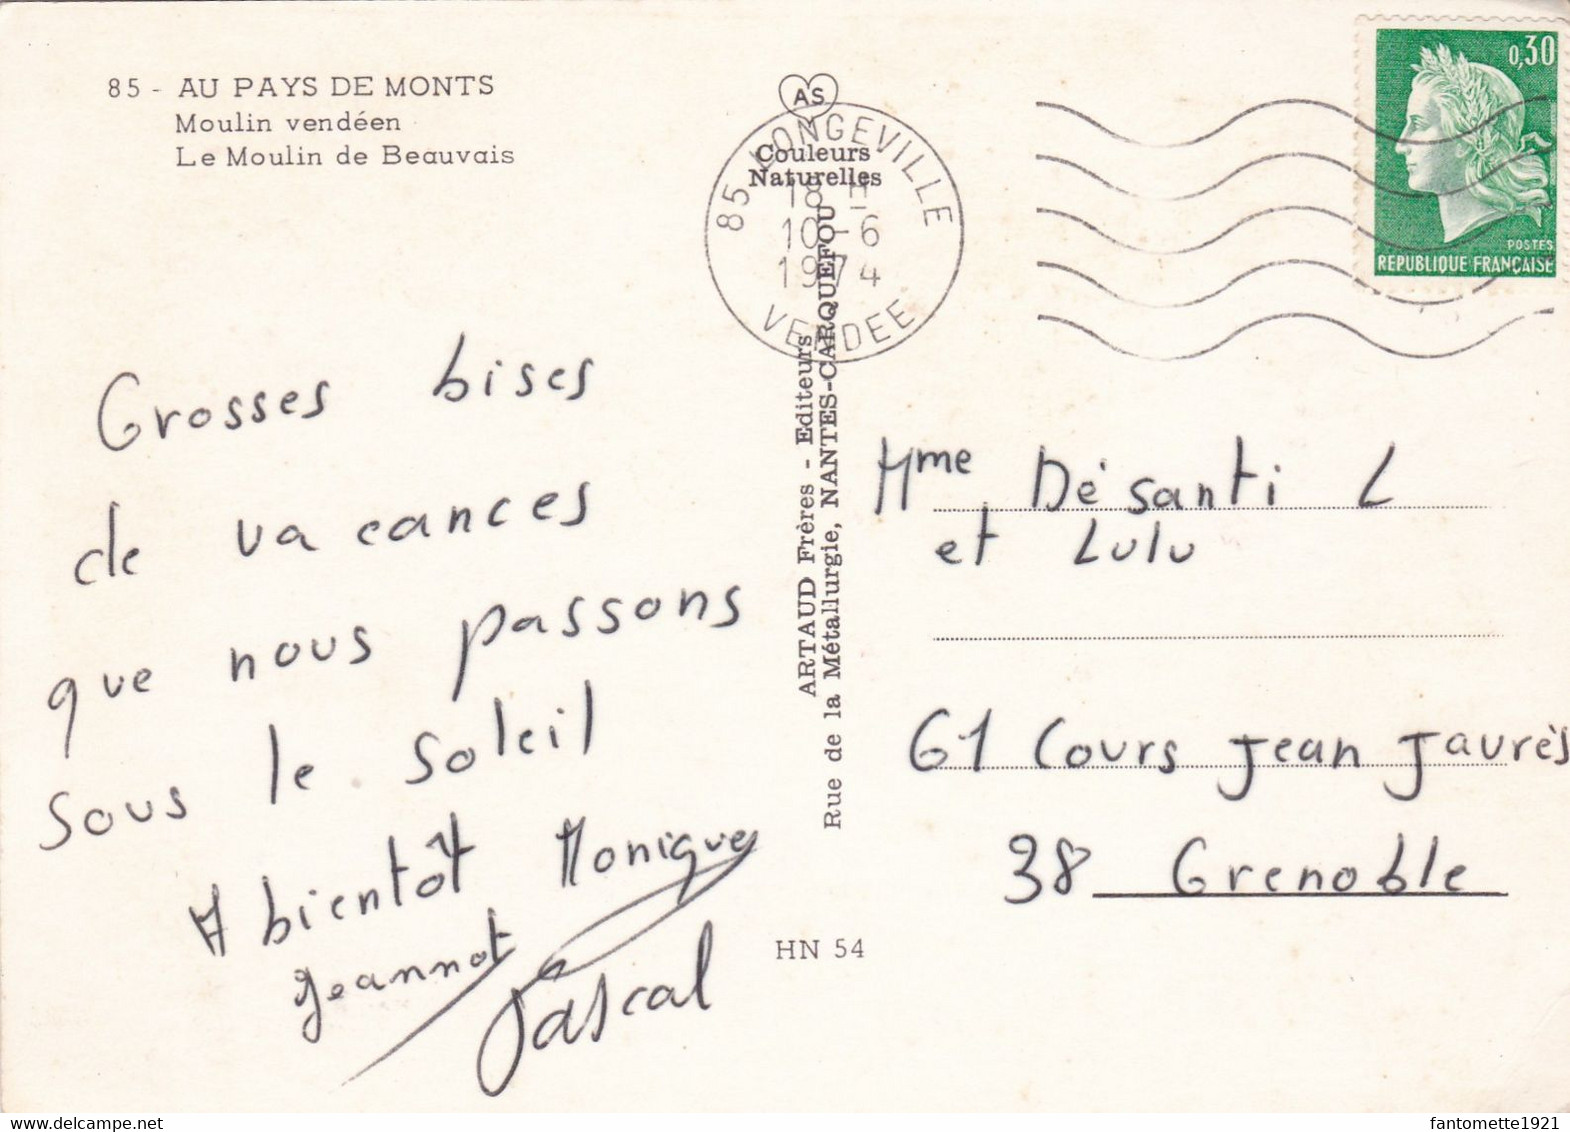 85 - AU PAYS DE MONTS
Moulin vendéen
Le Moulin de Beauvais
AS
Couleurs
Naturelles
85 LONGEVILLE
18 H
10-6
1974
VENDEE
0,30
POSTES
REPUBLIQUE FRANÇAISE
ARTAUD Frères - Editeurs
Rue de la Métallurgie, NANTES-CARQUEFOU
Grosses bises
de vacances
que nous passons
sous le soleil
A bientôt Monique
Jeannot
Pascal
Mme Dé santi L
et Lulu
61 Cours Jean Jaurès
38 Grenoble
HN 54
fantomette1921